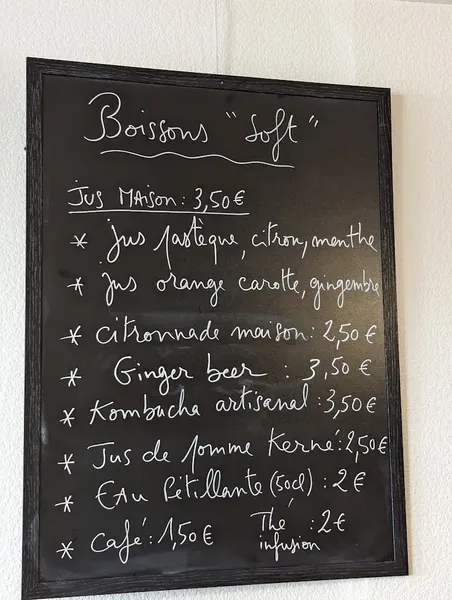 Boissons "Soft"
Jus Maison : 3,50 €
* jus pastèque, citron, menthe
* jus orange carotte, gingembre
* citronnade maison : 2,50 €
* Ginger beer : 3,50 €
* Kombucha artisanal : 3,50 €
* Jus de pomme Kerné : 2,50 €
* Eau Pétillante (50cl) : 2 €
* Café : 1,50 € Thé : 2 €
infusion